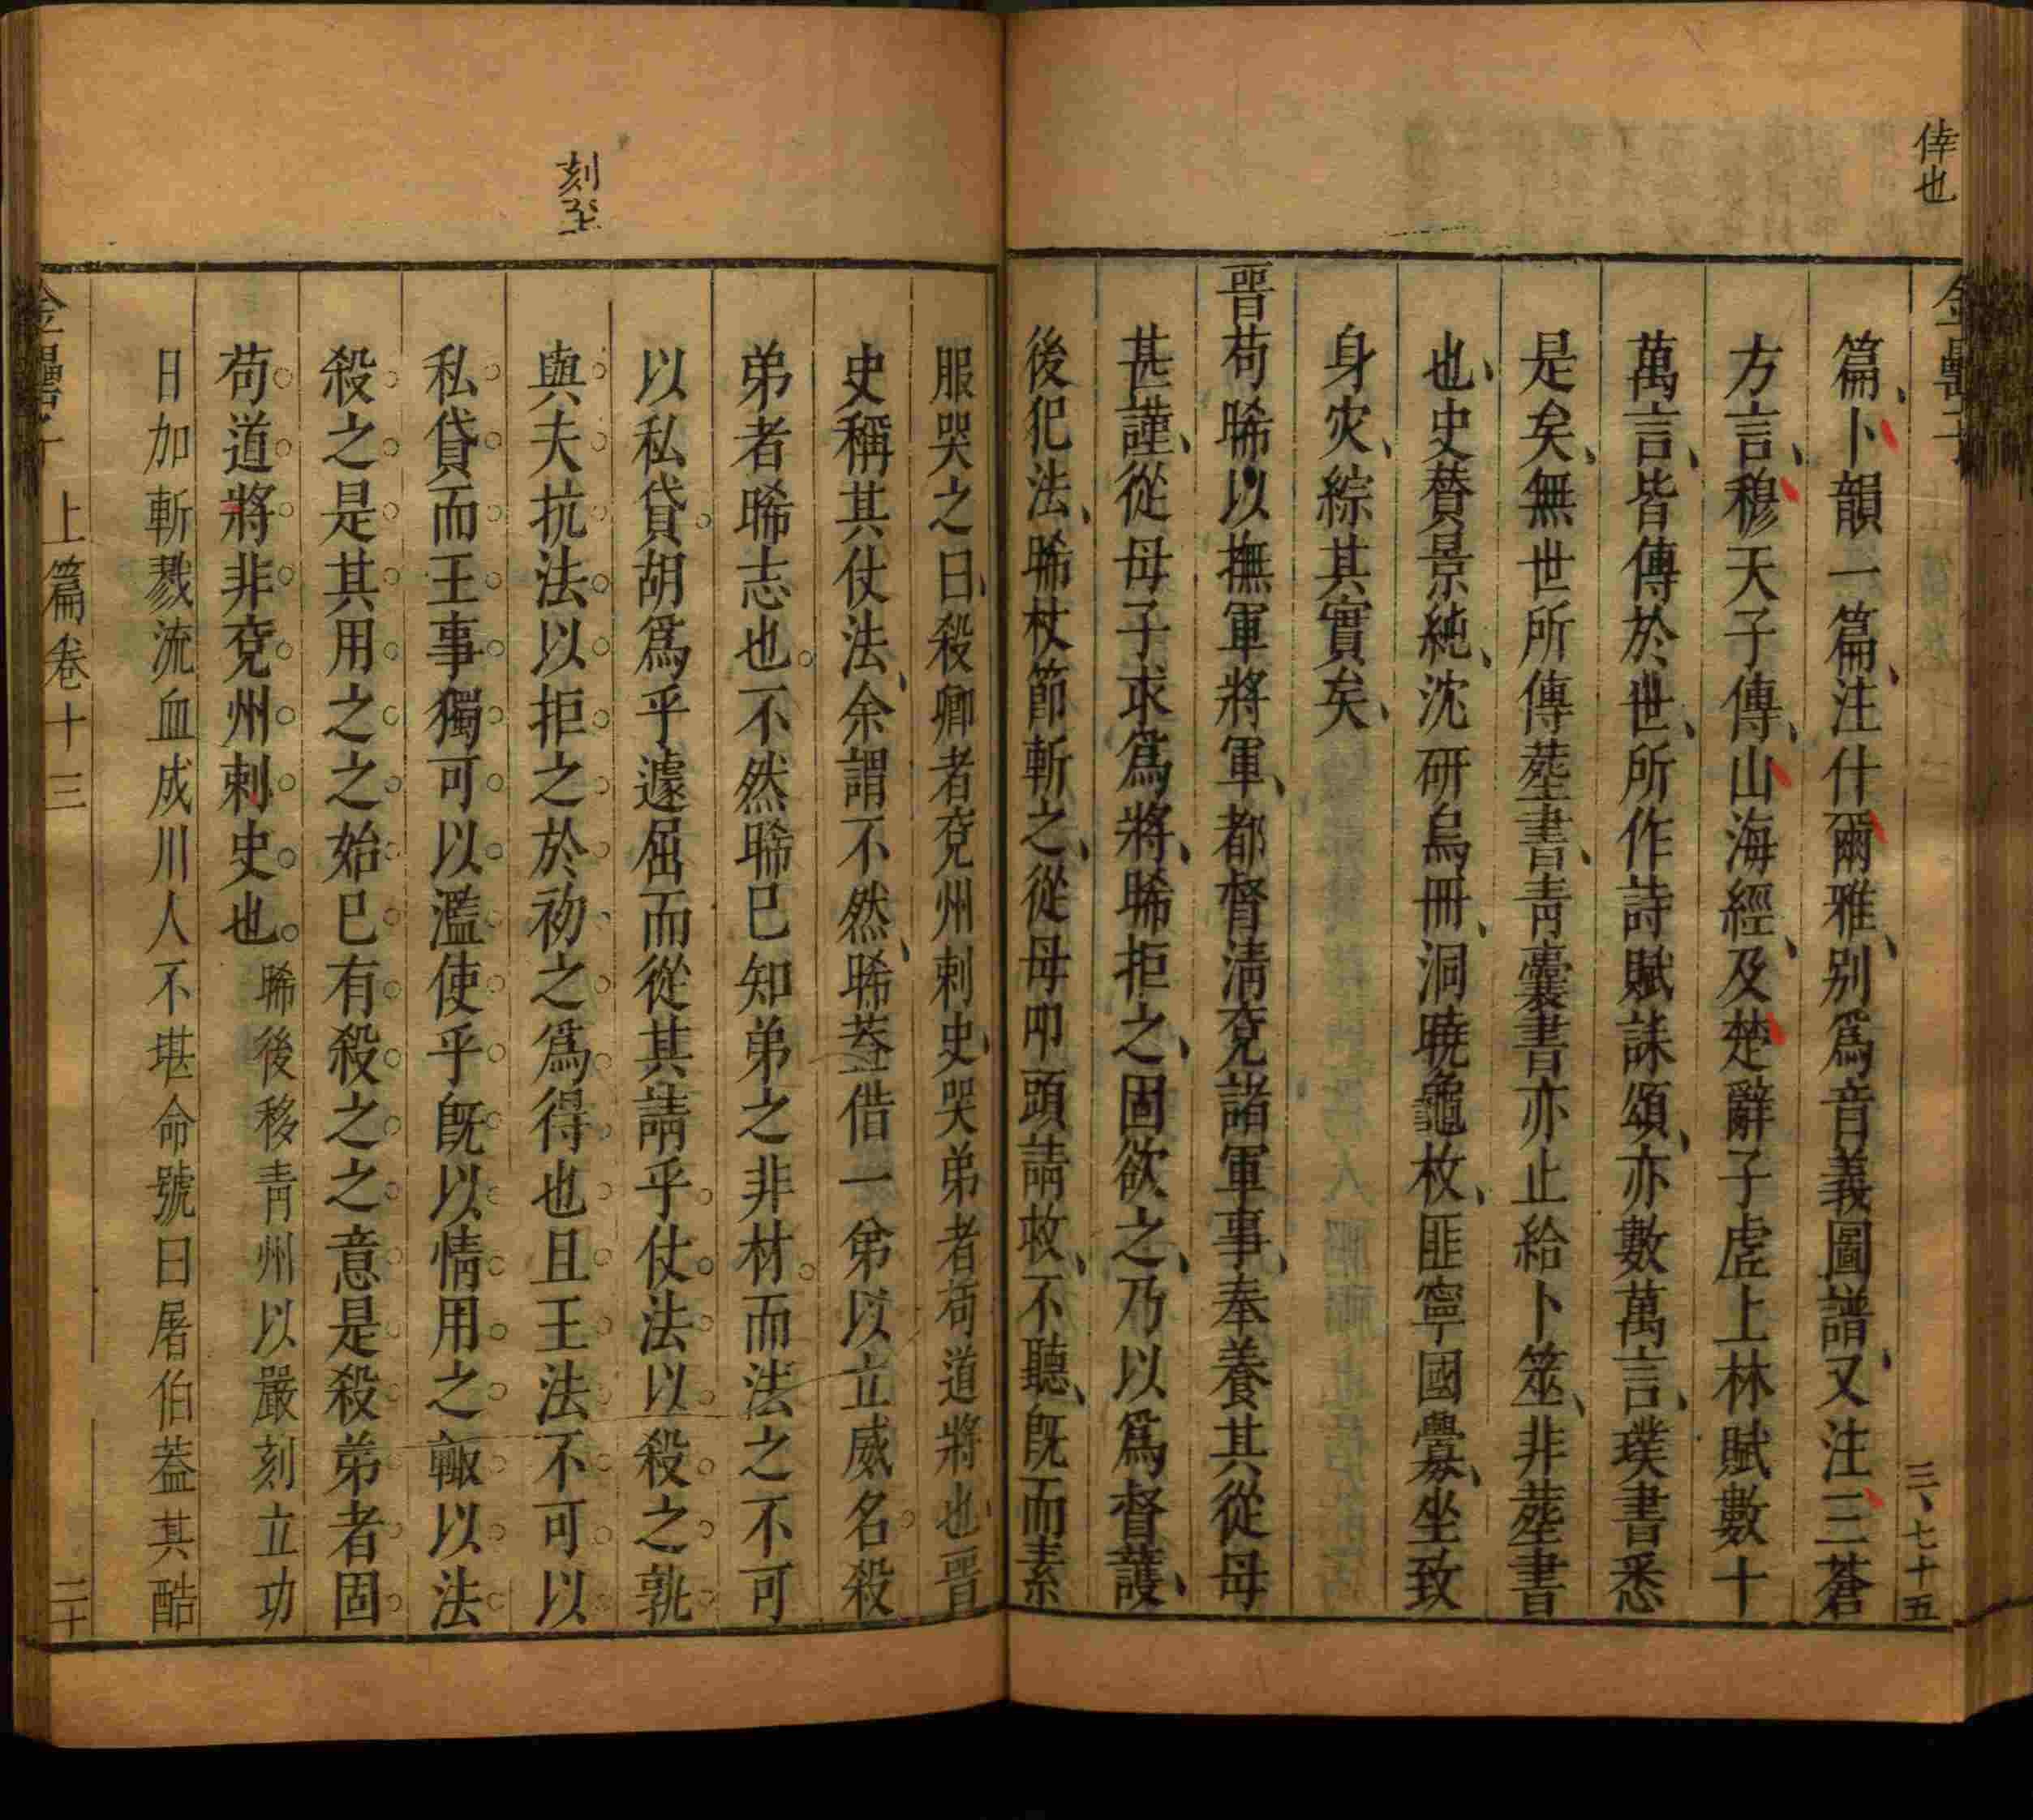 倖也
三、七十五
篇、卜韻一篇、注什爾雅、别爲音義圖譜、又注三蒼
方言、穆天子傳、山海經、及楚辭子虛上林賦數十
萬言、皆傳於世、所作詩賦誄頌、亦數萬言、璞書悉
是矣、無世所傳塟書、青囊書亦止給卜筮、非塟書
也、史賛景純、沈研鳥冊、洞曉龜枚、匪寧國釁、坐致
身灾、綜其實矣、
晋苟晞以撫軍將軍、都督淸兗諸軍事、奉養其從母
甚謹、從母子求爲將、晞拒之、固欲之、乃以爲督護、
後犯法、晞杖節斬之、從母叩頭請救、不聽、旣而素
服哭之曰、殺卿者兗州刺史、哭弟者苟道將也、晋
史稱其仗法、余謂不然、晞葢借一弟以立威名。殺
弟者晞志也。不然晞已知弟之非材。而法之不可
以私貸。胡爲乎遽屈而從其請乎。仗法以殺之、孰
與夫抗法以拒之於初之爲得也。且王法不可以
私貸而王事獨可以濫使乎。旣以情用之。輙以法
殺之。是其用之之始已有殺之之意。是殺弟者固
苟道將非兗州刺史也。晞後移青州以嚴刻立功
日加斬戮流血成川人不堪命號曰屠伯葢其酷
刻至
金罍子
上篇卷十三
二十